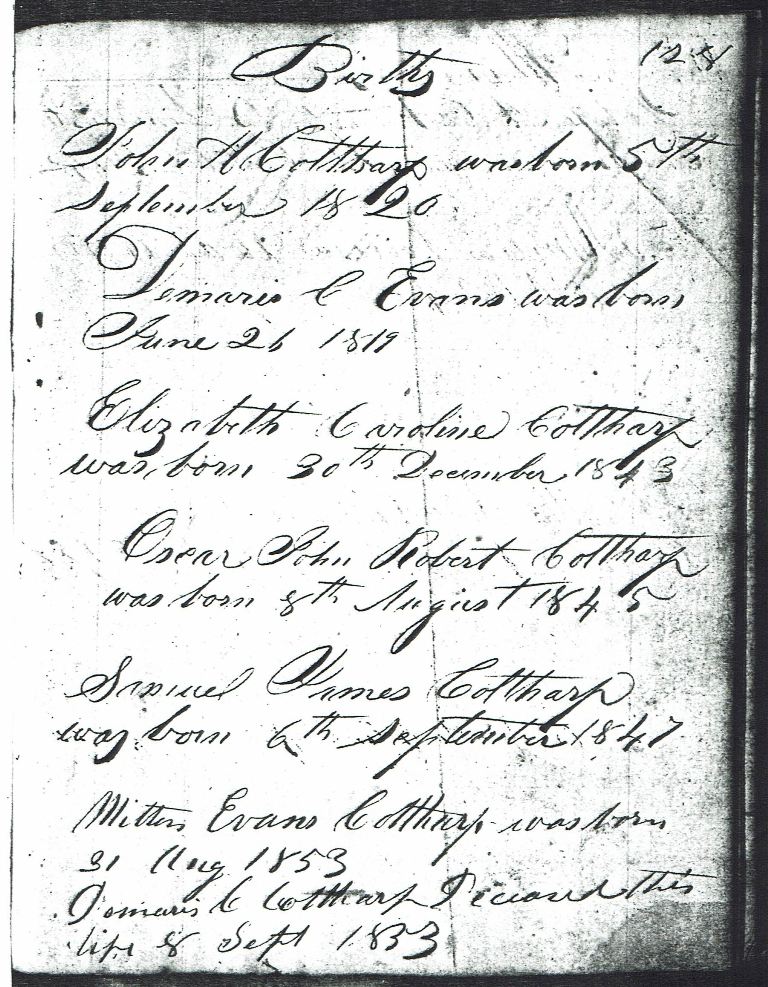 Births
128
John H Coltharp was born 5th
September 1820
Demaris C Evans was born
June 26 1819
Elizabeth Caroline Coltharp
was born 30th December 1843
Oscar John Robert Coltharp
was born 8th August 1845
Samuel James Coltharp
was born 6th September 1847
Mitten Evans Coltharp was born
31 Aug 1853
Demaris C Coltharp Deceased this
life 8 Sept 1853